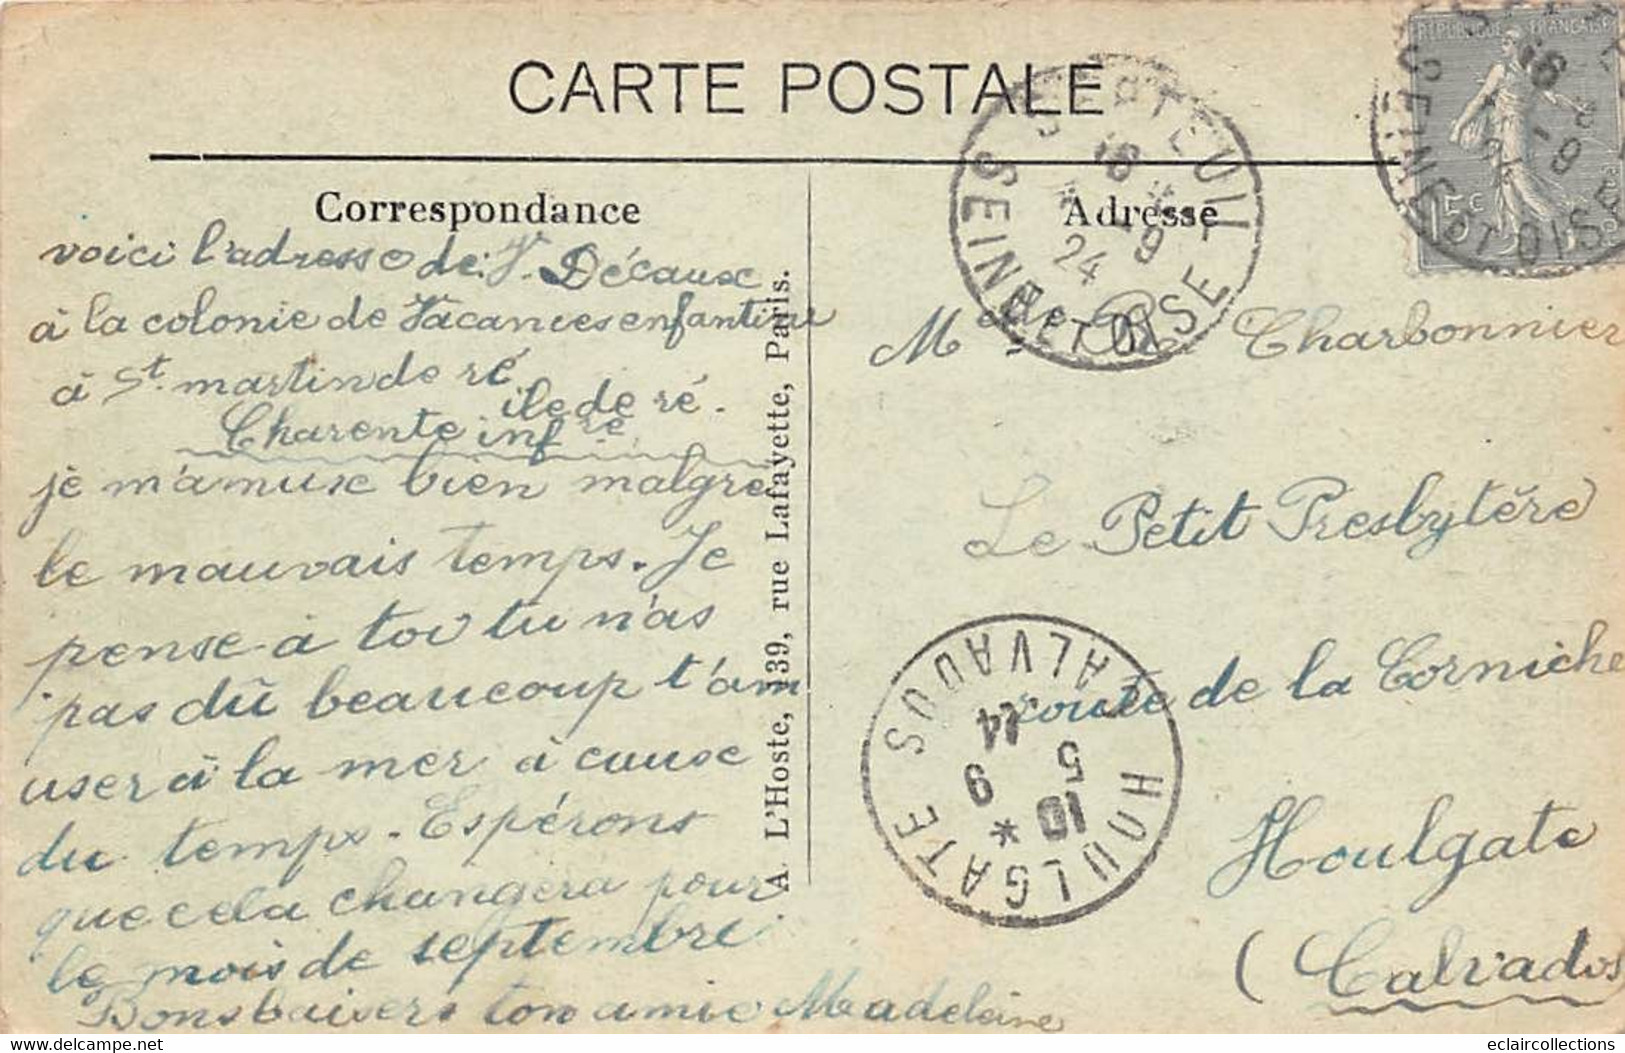 CARTE POSTALE
Correspondance
voici l'adresse de: J. Décaux
à la colonie de Vacances enfantine
à St. martin de ré
ile de ré.
Charente infre
je m'amuse bien malgré
le mauvais temps. Je
pense à toi tu n'as
pas dû beaucoup t'am
user à la mer à cause
du temps. Espérons
que cela changera pour
le mois de septembre
Bons baisers ton amie Madeleine
A. L'Hoste, 139, rue Lafayette, Paris.
REPUBLIQUE FRANÇAISE
15c
SEINE ET OISE
16
9
24
SEINE ET OISE
16
9
Adresse
Charbonnier
Le Petit Presbytère
route de la Corniche
Houlgate
(Calvados
HOULGATE CALVADOS
10 *
5 9
24
eclaircollections
www.delcampe.net